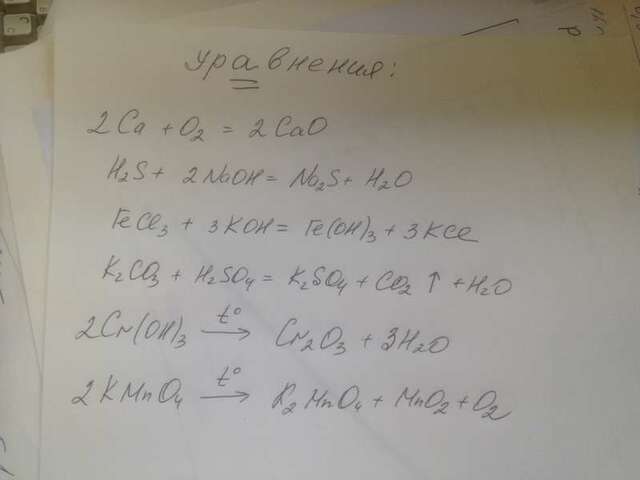 Уравнения:
2Ca + O₂ = 2CaO
H₂S + 2NaOH = Na₂S + H₂O
FeCl₃ + 3KOH = Fe(OH)₃ + 3KCl
K₂CO₃ + H₂SO₄ = K₂SO₄ + CO₂ ↑ + H₂O
2Cr(OH)₃ —t°→ Cr₂O₃ + 3H₂O
2KMnO₄ —t°→ K₂MnO₄ + MnO₂ + O₂